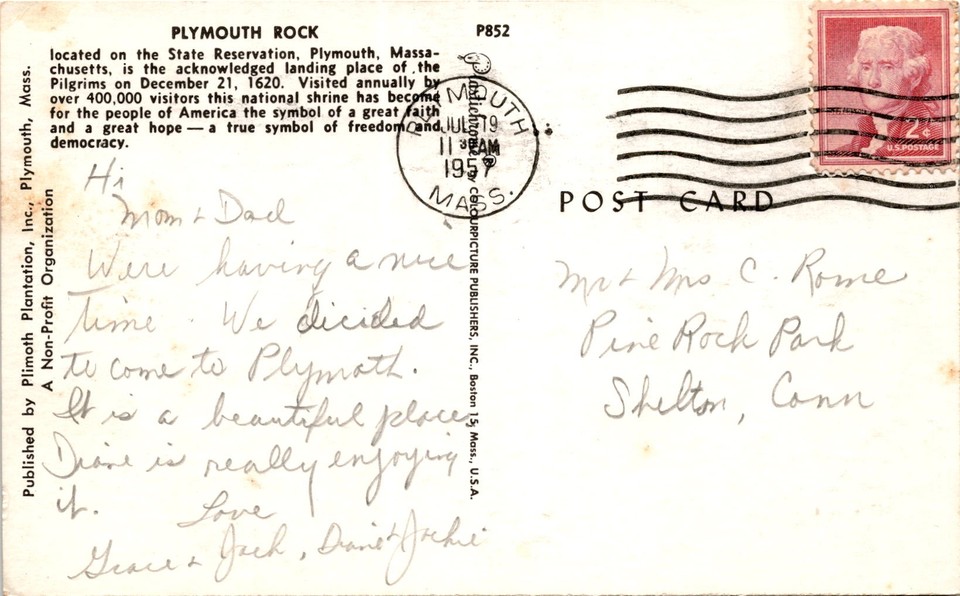 PLYMOUTH ROCK
located on the State Reservation, Plymouth, Massa-
chusetts, is the acknowledged landing place of the
Pilgrims on December 21, 1620. Visited annually by
over 400,000 visitors this national shrine has become
for the people of America the symbol of a great faith
and a great hope — a true symbol of freedom and
democracy.
Published by Plimoth Plantation, Inc., Plymouth, Mass.
A Non-Profit Organization
Hi
Mom & Dad
Were having a nice
time. We dicided
to come to Plymoth.
It is a beautiful place,
Diane is really enjoying
it. Love
Grace & Jack, Diane & Jackie
P852
Plastichrome ® by COLOURPICTURE PUBLISHERS, INC., Boston 15, Mass., U.S.A.
PLYMOUTH
JUL 19
11 30 AM
1957
MASS.
2¢
U.S. POSTAGE
POST CARD
Mr & Mrs C. Rome
Pine Rock Park
Shelton, Conn